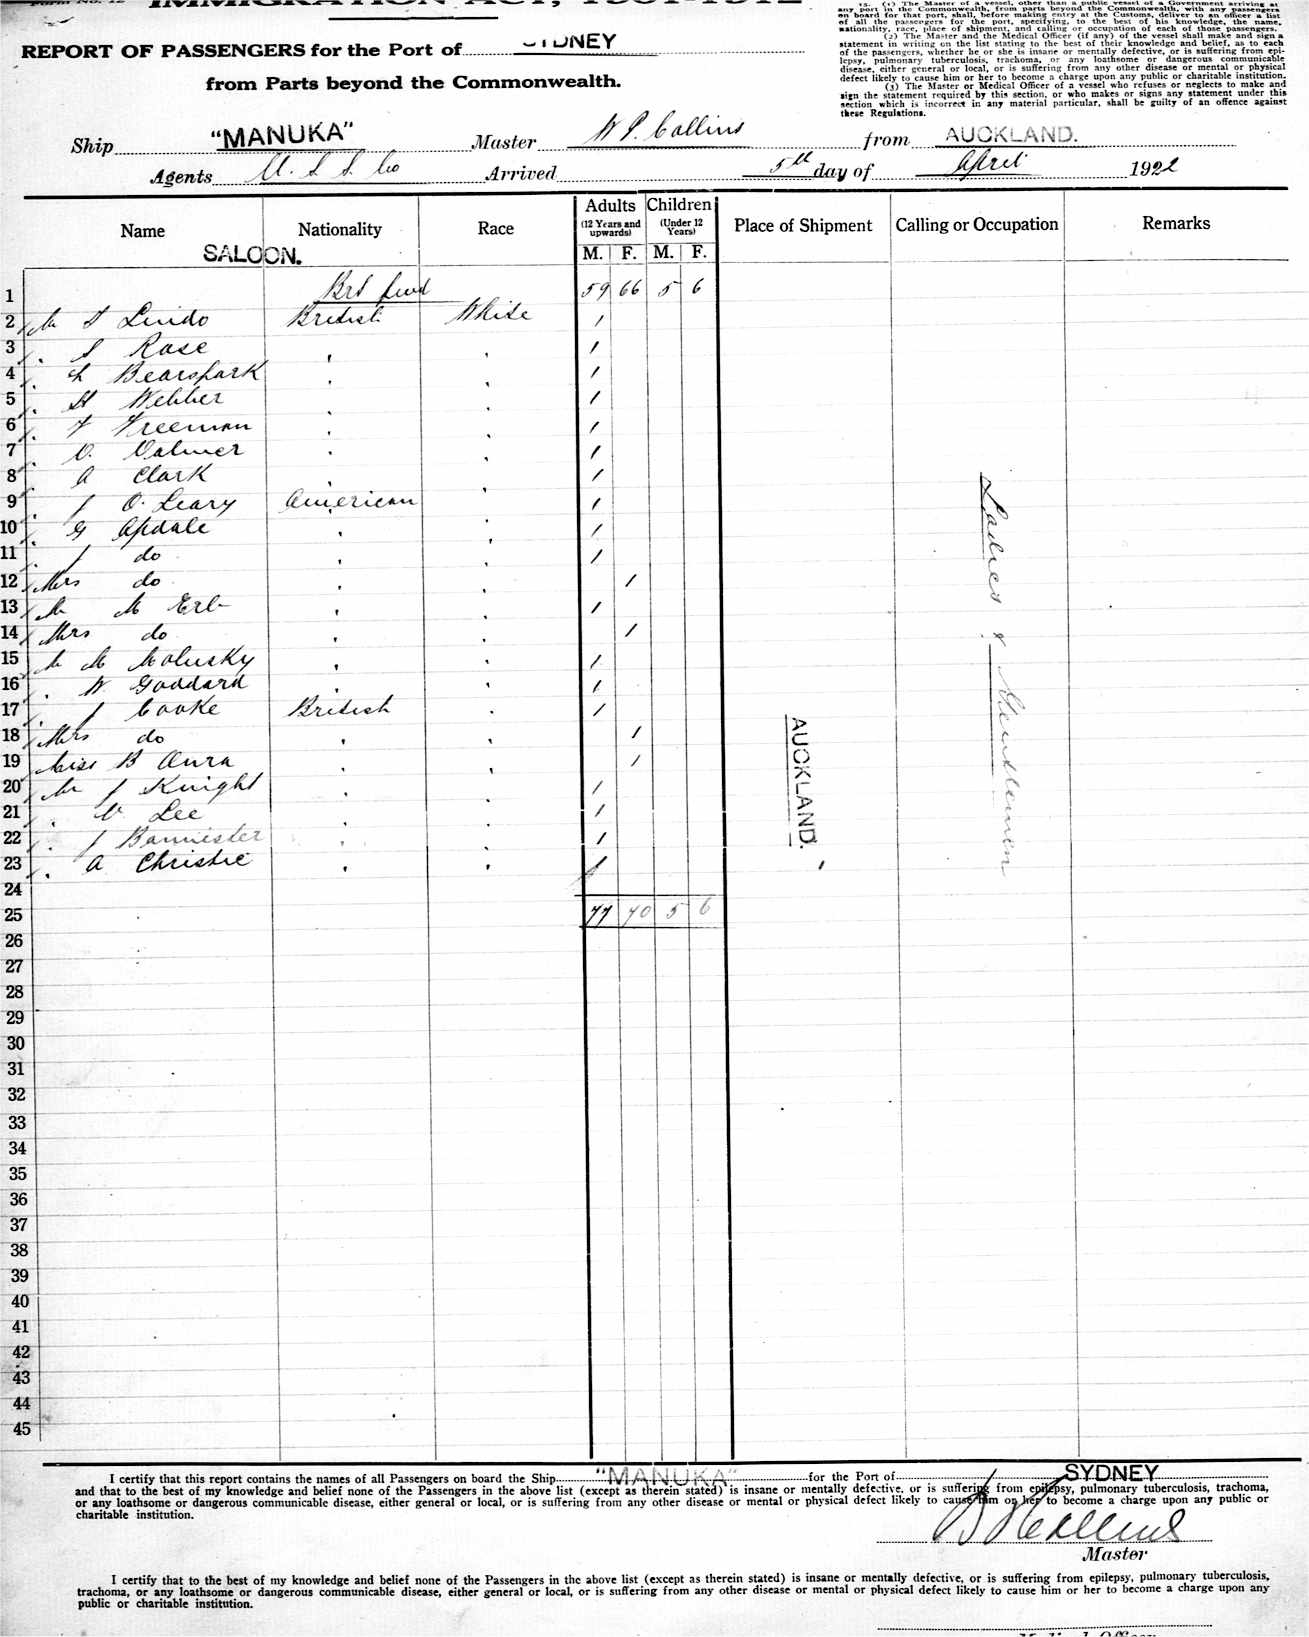 IMMIGRATION ACT, 1901-1912
15. (1) The Master of a vessel, other than a public vessel of a Government arriving at
any port in the Commonwealth, from parts beyond the Commonwealth, with any passengers
on board for that port, shall, before making entry at the Customs, deliver to an officer a list
of all the passengers for the port, specifying, to the best of his knowledge, the name,
nationality, race, place of shipment, and calling or occupation of each of those passengers.
(2) The Master and the Medical Officer (if any) of the vessel shall make and sign a
statement in writing on the list stating to the best of their knowledge and belief, as to each
of the passengers, whether he or she is insane or mentally defective, or is suffering from epi-
lepsy, pulmonary tuberculosis, trachoma, or any loathsome or dangerous communicable
disease, either general or local, or is suffering from any other disease or mental or physical
defect likely to cause him or her to become a charge upon any public or charitable institution.
(3) The Master or Medical Officer of a vessel who refuses or neglects to make and
sign the statement required by this section, or who makes or signs any statement under this
section which is incorrect in any material particular, shall be guilty of an offence against
these Regulations.
REPORT OF PASSENGERS for the Port of SYDNEY
from Parts beyond the Commonwealth.
Ship "MANUKA" Master W P. Collins from AUCKLAND.
Agents U. S. S. Co Arrived 5th day of April 1922
Name Nationality Race Adults (12 Years and upwards) M. F. Children (Under 12 Years) M. F. Place of Shipment Calling or Occupation Remarks
SALOON.
1 Brt fwd 59 66 5 6
2 Mr Lindo British White /
3 " S Rose " " /
4 " Bearspark " " /
5 " H Webber " " /
6 " F Freeman " " /
7 " V. Valmer " " /
8 " A Clark " " /
9 " J O. Leary American " /
10 " G Apdale " " /
11 " J do " " /
12 Mrs do " " /
13 Mr M Erb " " /
14 Mrs do " " /
15 Mr M Molusky " " /
16 " W Goddard " " /
17 " J Cooke British " /
18 Mrs do " " /
19 Miss B Aura " " /
20 Mr J Knight " " /
21 " V Lee " " /
22 " J Bannister " " /
23 " A Christie " " /
24
25 77 70 5 6
26
27
28
29
30
31
32
33
34
35
36
37
38
39
40
41
42
43
44
45
AUCKLAND.
Ladies & Gentlemen
I certify that this report contains the names of all Passengers on board the Ship "MANUKA" for the Port of SYDNEY
and that to the best of my knowledge and belief none of the Passengers in the above list (except as therein stated) is insane or mentally defective, or is suffering from epilepsy, pulmonary tuberculosis, trachoma,
or any loathsome or dangerous communicable disease, either general or local, or is suffering from any other disease or mental or physical defect likely to cause him or her to become a charge upon any public or
charitable institution.
W P Collins
Master
I certify that to the best of my knowledge and belief none of the Passengers in the above list (except as therein stated) is insane or mentally defective, or is suffering from epilepsy, pulmonary tuberculosis,
trachoma, or any loathsome or dangerous communicable disease, either general or local, or is suffering from any other disease or mental or physical defect likely to cause him or her to become a charge upon any
public or charitable institution.
Medical Officer